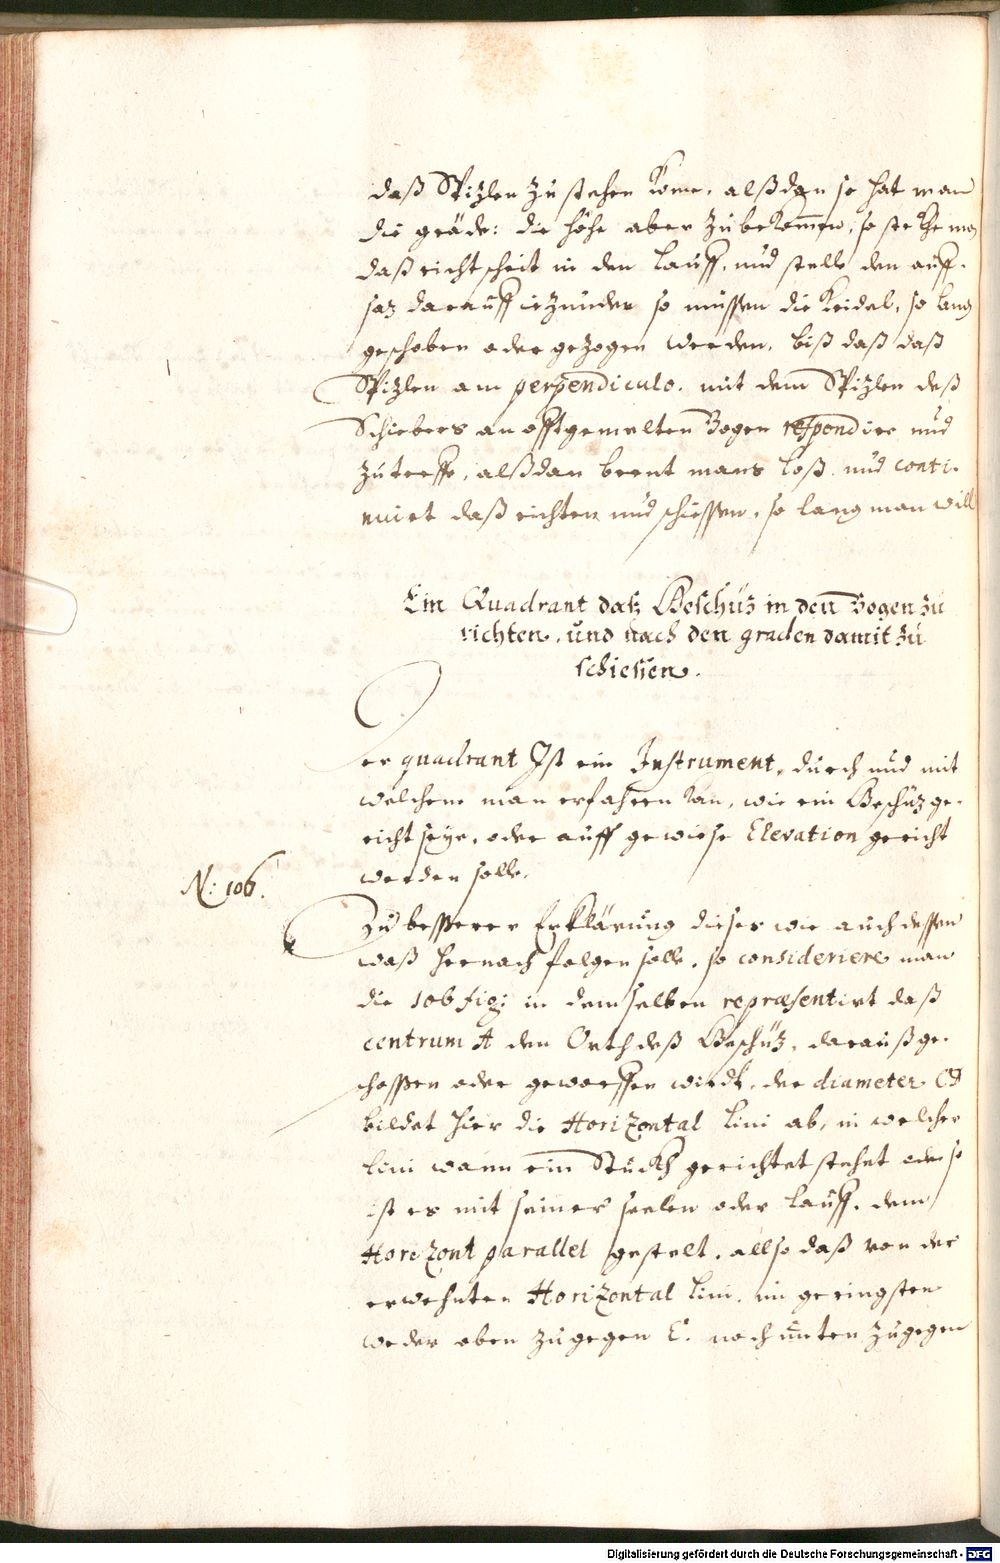 daß Spizlen zu stehen kome, alßdan so hat man
die gräde: die höhe aber zu bekommen, so stekhe man
daß richtscheit in den lauff, und stelle den auff-
saz darauff iezunder so müssen die Keidel, so lang
geschoben oder gezogen werden, biß daß daß
Spizlen am perpendiculo, mit dem Spizlen deß
Schiebers an offtgemelten Bogen respondire und
zutreffe, alßdan brent mans loß, und conti-
nuirt daß richten und schiessen, so lang man will
Ein Quadrant daß Geschüz in den Bogen zu
richten, und nach den graden damit zu
schiessen.
Der quadrant Ist ein Instrument, durch und mit
welchem man erfahren kan, wie ein Geschüz ge-
richt seye, oder auff gewiese Elevation gericht
werden solle.
N: 106.
Zu besserer Erklärung dieser wie auch dessen
waß hernach folgen solle, so consideriere man
die 106 fig: in demselben repræsentirt daß
centrum A den Orth deß Geschüz, darauß ge-
schossen oder geworffen wirdt, der diameter CD
bildet hier die Horizontal lini ab, in welcher
lini wann ein Stuckh gerichtet stehet so
ist es mit seiner seelen oder lauff, dem
Horizont parallel gestelt, allso daß von der
erwehnten Horizontal lini, im geringsten
weder oben zugegen E. noch unten zugegen
Digitalisierung gefördert durch die Deutsche Forschungsgemeinschaft - DFG